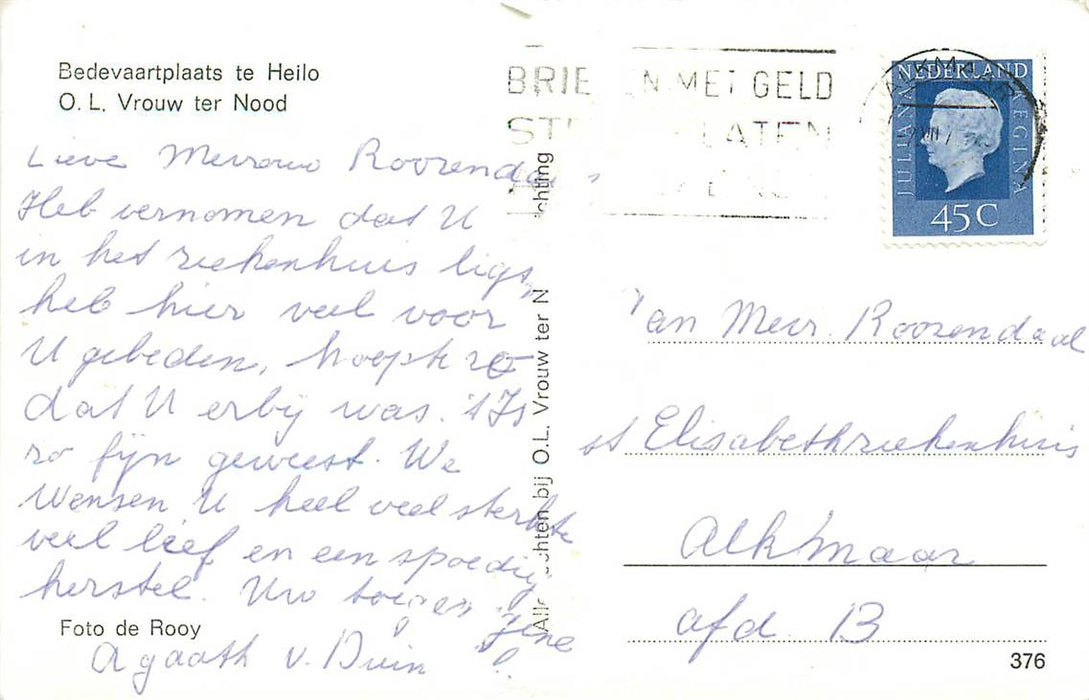 Bedevaartplaats te Heilo
O. L. Vrouw ter Nood
Lieve Mevrouw Roozendaal
Heb vernomen dat U
in het ziekenhuis ligt,
heb hier veel voor
U gebeden, hoopte zo
dat U erbij was. 't Is
zo fijn geweest. We
wensen U heel veel sterkte
veel leef en een spoedig
herstel. Uw
Agaath v. Duin
Foto de Rooy
chting
chten bij O.L. Vrouw ter N
BRIE EN MET GELD
ST LATEN
NEDERLAND
JULIANA
REGINA
45 C
ALKMAAR
an Mevr. Roozendaal
st Elisabethziekenhuis
Alkmaar
afd B
376